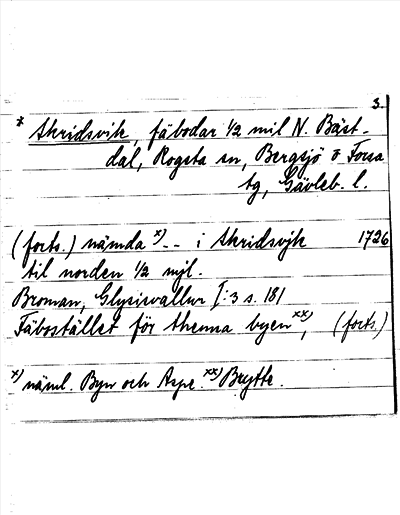 3.
* Skridsvik, fäbodar 1/2 mil N. Bäst-
dal, Rogsta sn, Bergsjö o Forsa
tg, Gävleb. l.
(forts.) nämda x) -- i Skridsvjk 1726
til norden 1/2 mjl.
Broman, Glysisvallur I:3 s. 181
Fäbostället för thenna byen xx), (forts.)
x) näml. Byn och Arpe. xx) Brytte.